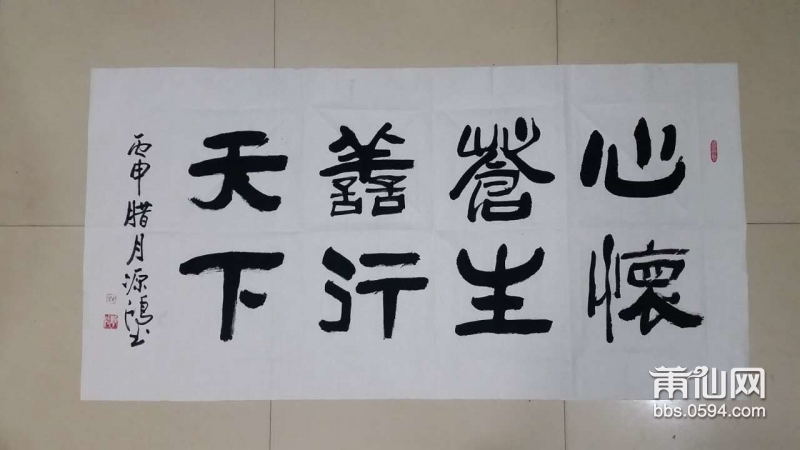 心懷
蒼生
善行
天下
丙申腊月源鴻书
莆仙网
bbs.0594.com